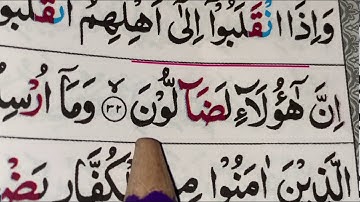 وَاِذَا انْقَلَبُوْٓا اِلٰٓى اَهْلِهِمُ انْقَلَبُوْا
اِنَّ هٰٓؤُلَآءِ لَضَآلُّوْنَ ۙ﴿۳۲﴾ وَمَاۤ اُرْسِلُ
الَّذِيْنَ اٰمَنُوْا مِنَ الْكُفَّارِ يَضْ